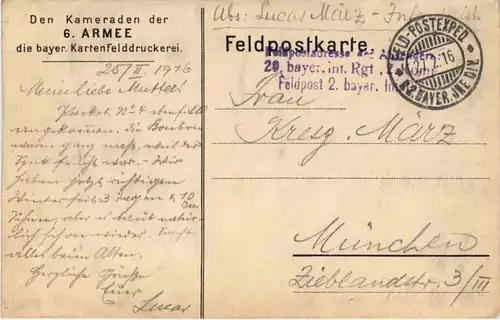 Den Kameraden der
6. ARMEE
die bayer. Kartenfelddruckerei.
25/II. 1916
Meine liebe Mutter!
Packet No 4 ebenfalls
angekommen. Die Bonbon
waren ganz naß, weil der
Speck feucht war. – Wir
haben jetzt richtigen
Winter seit 3 Tagen & 10 cm
Schnee, aber es taut natür-
lich schon wieder. Sonst
alles beim Alten.
Herzliche Grüße
Euer
Lucas
Abs: Lucas März – Infanterist
Feldpostkarte.
Feldpostadresse des Absenders:
20. bayer. Inf. Rgt., Komp.
Feldpost 2. bayer. Inf.
FELD-POSTEXPED.
2.16
BAYER. INF. DIV.
Frau
Kresz. März
München
Zieblandstr. 3/III